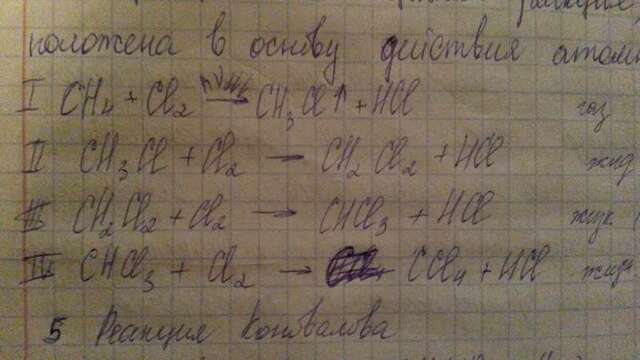 положена в основу действия атомн
I CH4 + Cl2 → CH3Cl↑ + HCl газ
II CH3Cl + Cl2 → CH2Cl2 + HCl жид
III CH2Cl2 + Cl2 → CHCl3 + HCl жидк
IV CHCl3 + Cl2 → CCl4 + HCl жидк
5 Реакция Коновалова